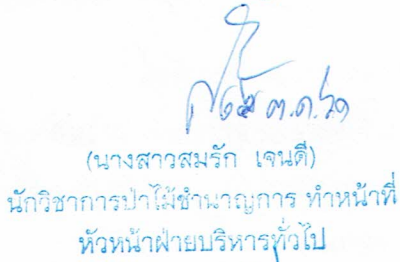 ต.ค. ๖๑
(นางสาวสมรัก เจนดี)
นักวิชาการป่าไม้ชำนาญการ ทำหน้าที่
หัวหน้าฝ่ายบริหารทั่วไป